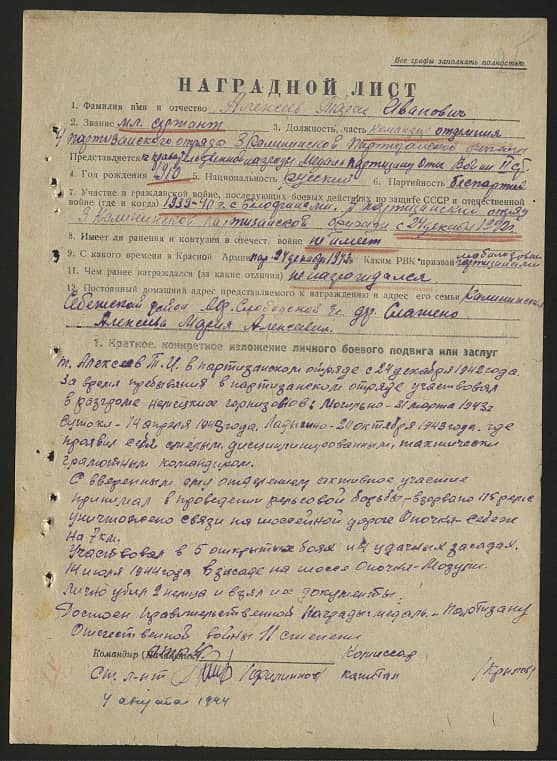 Все графы заполнять полностью
НАГРАДНОЙ ЛИСТ
1. Фамилия имя и отчество Алексеев Иванович
2. Звание мл. сержант 3. Должность, часть командир отделения
4 партизанского отряда 3 Калининской партизанской бригады
Представляется к правительственной награде Медаль Партизану Отеч Войны II ст.
4. Год рождения 1910 5. Национальность русский 6. Партийность беспартив
7. Участие в гражданской войне, последующих боевых действиях по защите СССР и отечественной
войне (где и когда) 1939-40 г. с белофинами, в партизанском отряде
3 Калининской партизанской бригады с 24 декабря 1942 г.
8. Имеет ли ранения и контузии в отечест. войне не имеет
9. С какого времени в Красной Армии 24 декабря 1942 Каким РВК призван мобилизован
партизанами
11. Чем ранее награждался (за какие отличия) не награждался
12. Постоянный домашний адрес представляемого к награждению и адрес его семьи Калининская
Себежский район Слободской с. дер.
Алексеева Мария Алексеевна
1. Краткое, конкретное изложение личного боевого подвига или заслуг
т. Алексеев Т.И. в партизанском отряде с 24 декабря 1942 года.
За время пребывания в партизанском отряде участвовал
в разгроме немецких гарнизонов: Могильно - 31 марта 1943 г
Сутоки - 14 апреля 1943 года. Ладыгино - 21 октября 1943 года. где
проявил себя смелым, дисциплинированным, технически
грамотным командиром.
С вверенным ему отделением активное участие
принимал в проведении рельсовой борьбы - взорвано рельс
уничтожено связи на шоссейной дороге Опочка - Себеж
на 7 км.
Участвовал в 5 открытых боях и 4 удачных засадах.
14 июля 1944 года в засаде на шоссе Опочка - Мозули.
Лично убил 2 немца и взял их документы.
Достоин Правительственной Награды медаль - Партизану
Отечественной войны II степени
Командир (Начальник) Комиссар
Ст. л-нт капитан
4 августа 1944